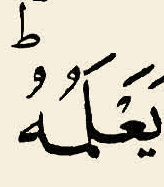 يَعْلَمُهُ ؕ